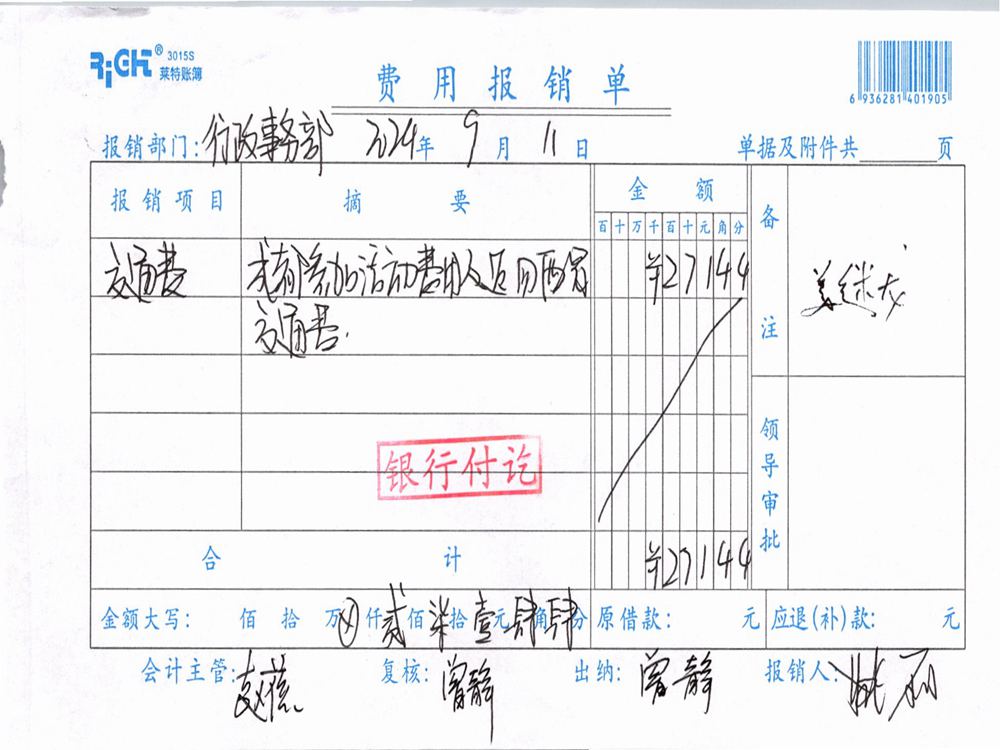 RiGHT® 3015S
莱特账簿
费用报销单
6 936281 401905
报销部门:行政事务部 2024年 9月 11日 单据及附件共 页
报销项目 摘要 金额 备注
百十万千百十元角分
交通费 参加活动费用人返回西宁 ¥27144 姜继龙
交通费.
领导审批
银行付讫
合计 ¥27144
金额大写: 佰 拾 万 ⓧ仟 贰佰 柒拾 壹元 肆角 肆分 原借款: 元 应退(补)款: 元
会计主管: 赵 复核: 曾静 出纳: 曾静 报销人: 姚